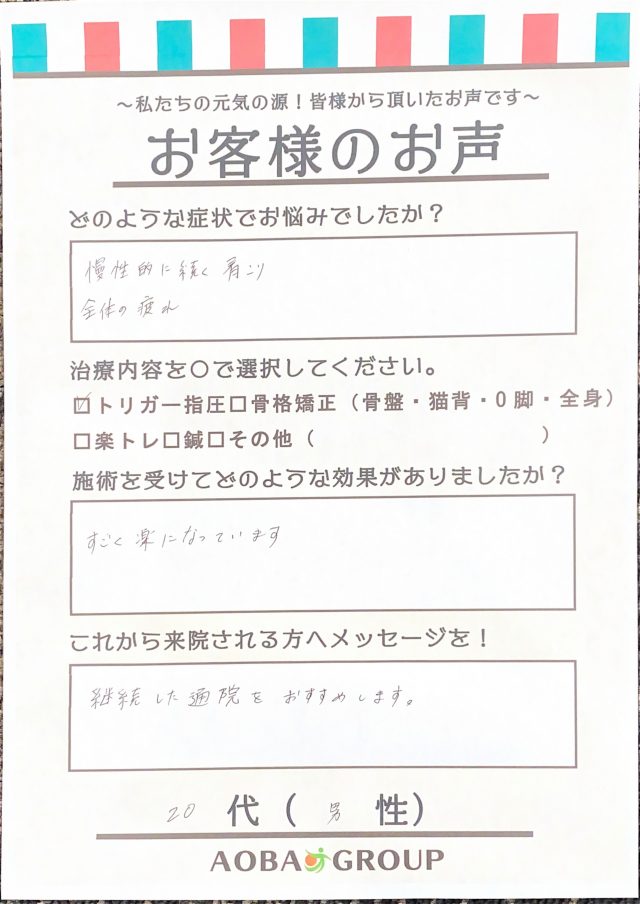 ～私たちの元気の源！皆様から頂いたお声です～
お客様のお声
どのような症状でお悩みでしたか？
慢性的に続く肩こり
全体の疲れ
治療内容を〇で選択してください。
☑トリガー指圧□骨格矯正（骨盤・猫背・O脚・全身）
□楽トレ□鍼□その他（　　　　　　　　　　）
施術を受けてどのような効果がありましたか？
すごく楽になっています
これから来院される方へメッセージを！
継続した通院をおすすめします。
20代（男性）
AOBA GROUP